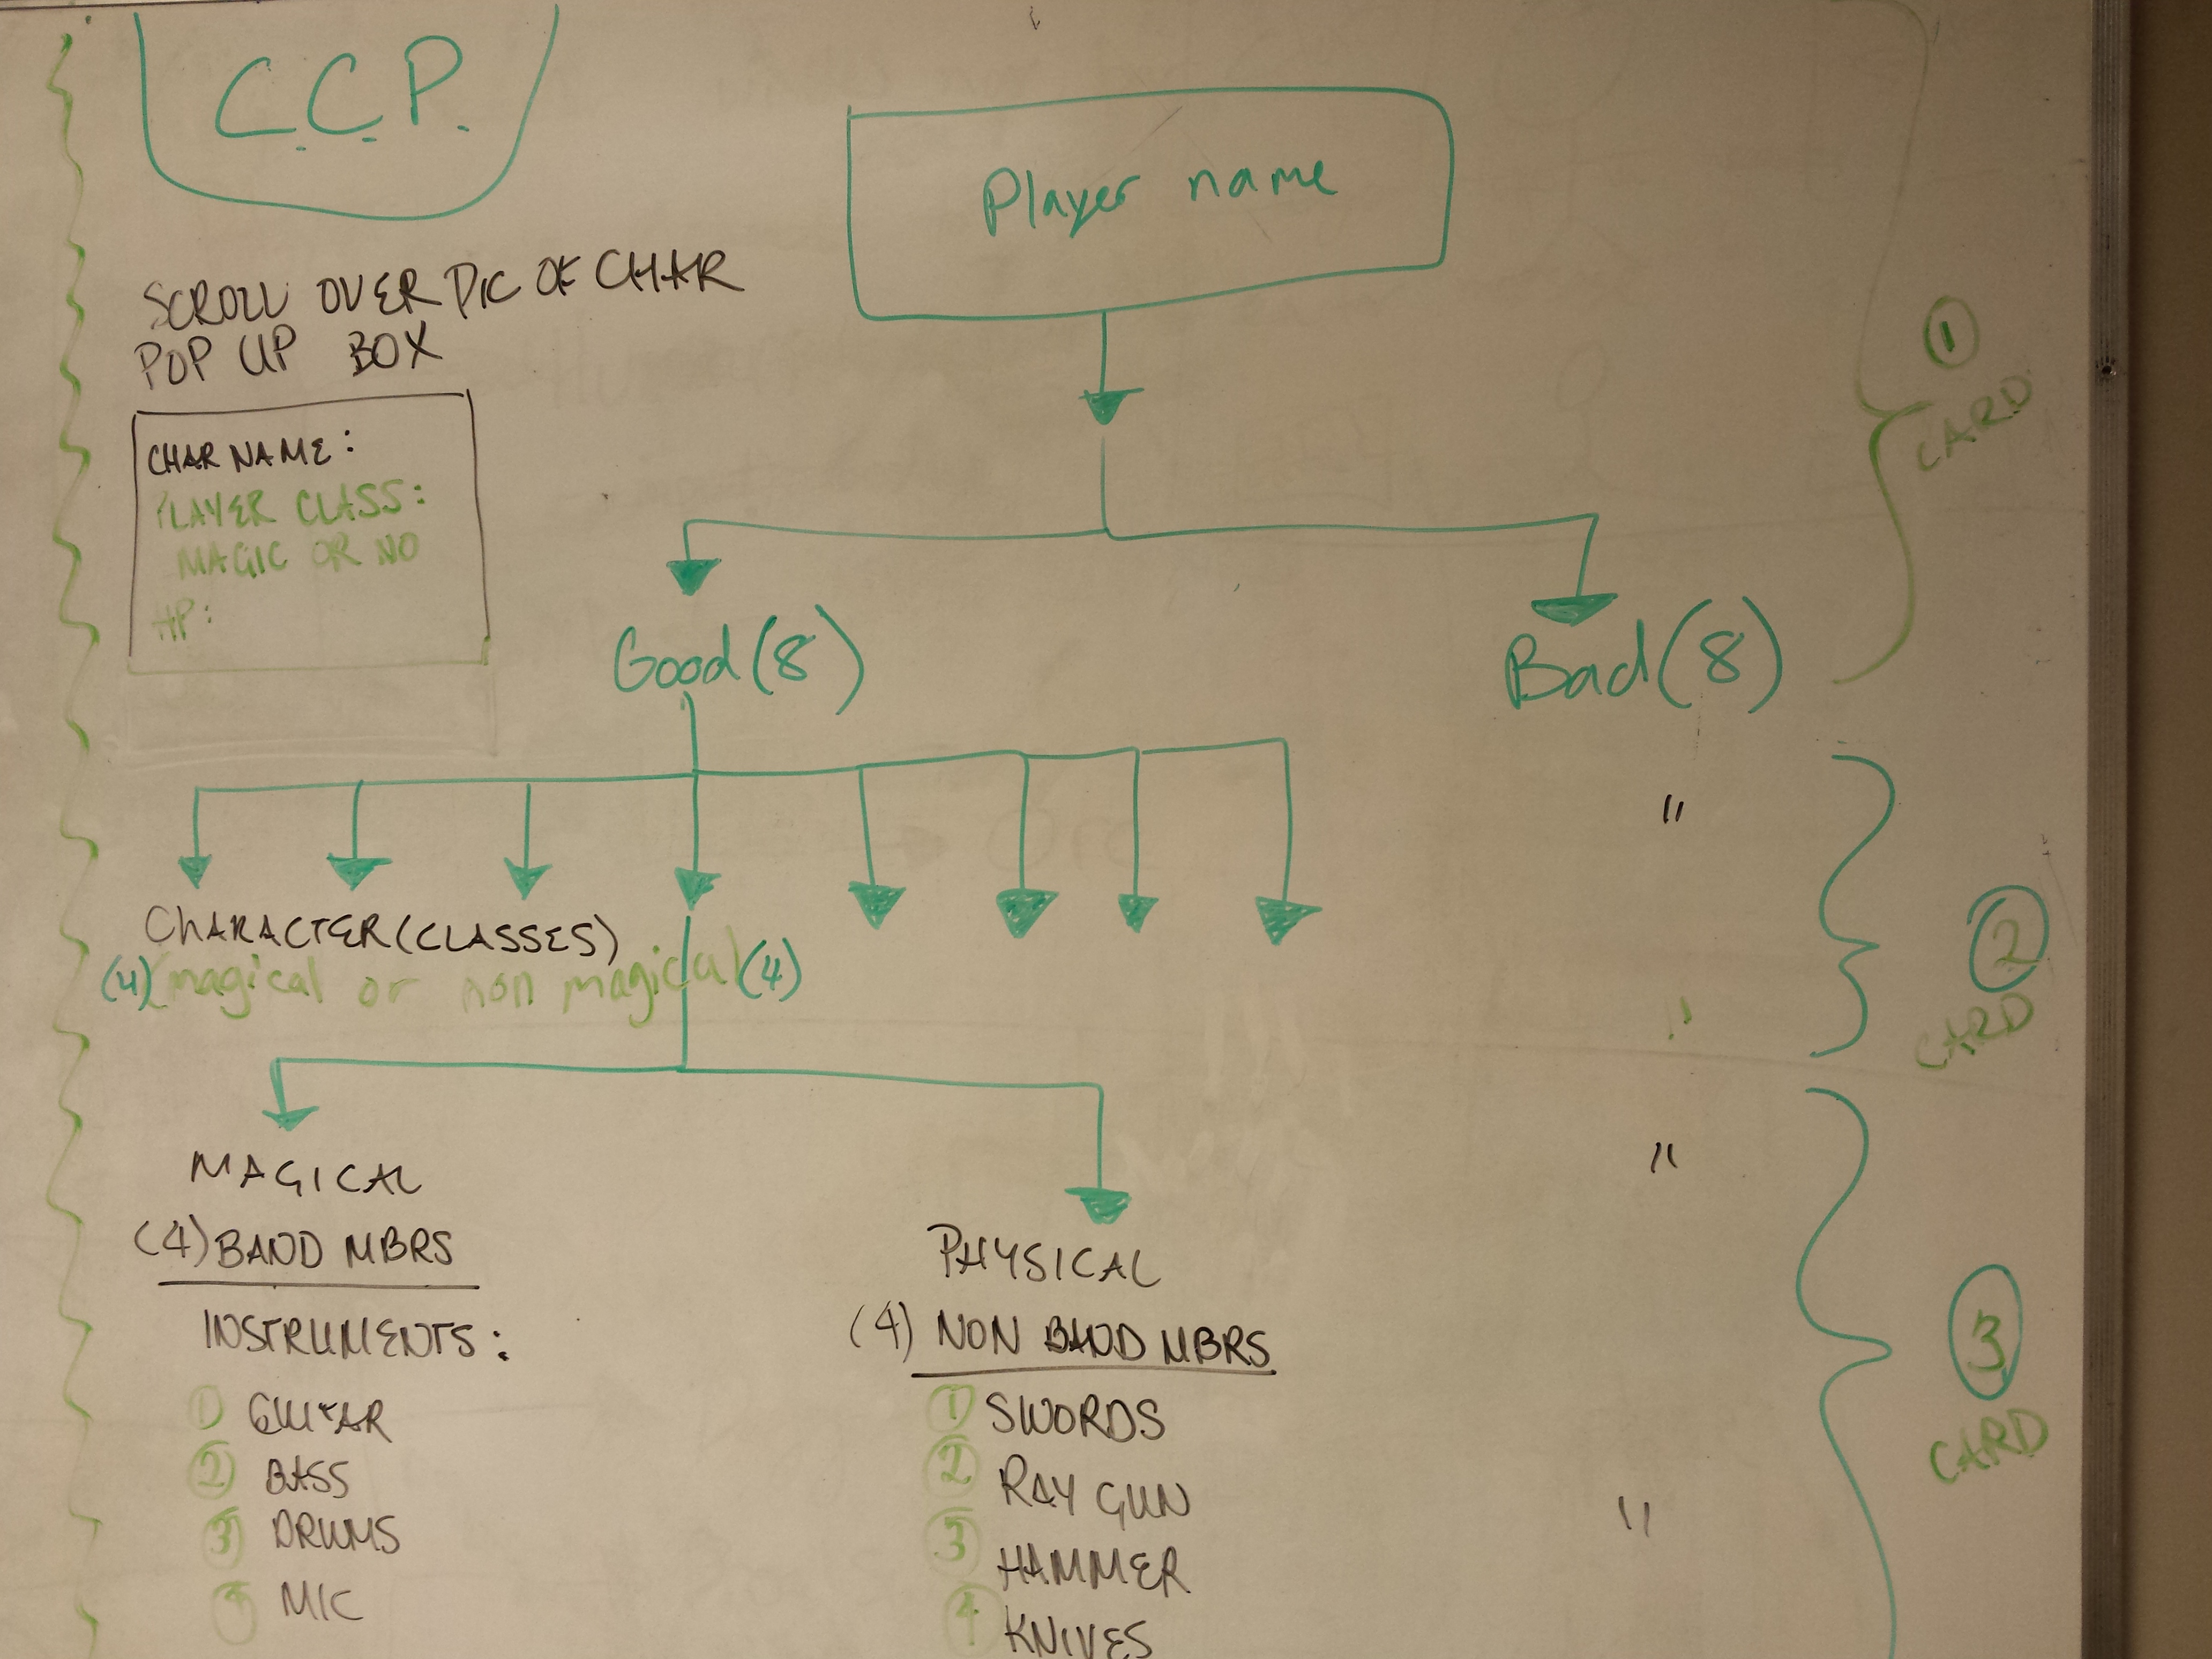 C.C.P.
Player name
SCROLL OVER PIC OF CHAR
POP UP BOX
CHAR NAME:
PLAYER CLASS:
MAGIC OR NO
HP:
① CARD
Good (8)
Bad (8)
"
CHARACTER (CLASSES)
(4) (magical or non magical) (4)
"
② CARD
MAGICAL
(4) BAND MBRS
INSTRUMENTS:
① GUITAR
② BASS
③ DRUMS
④ MIC
PHYSICAL
(4) NON BAND MBRS
① SWORDS
② RAY GUN
③ HAMMER
④ KNIVES
"
"
③ CARD